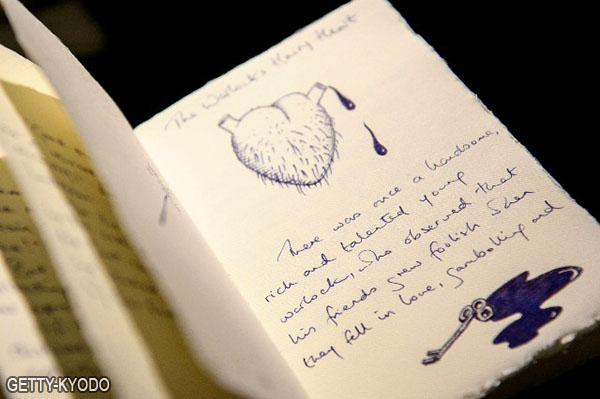 The Warlock's Hairy Heart
There was once a handsome,
rich and talented young
warlock, who observed that
his friends grew foolish when
they fell in love, gambolling and
GETTY-KYODO